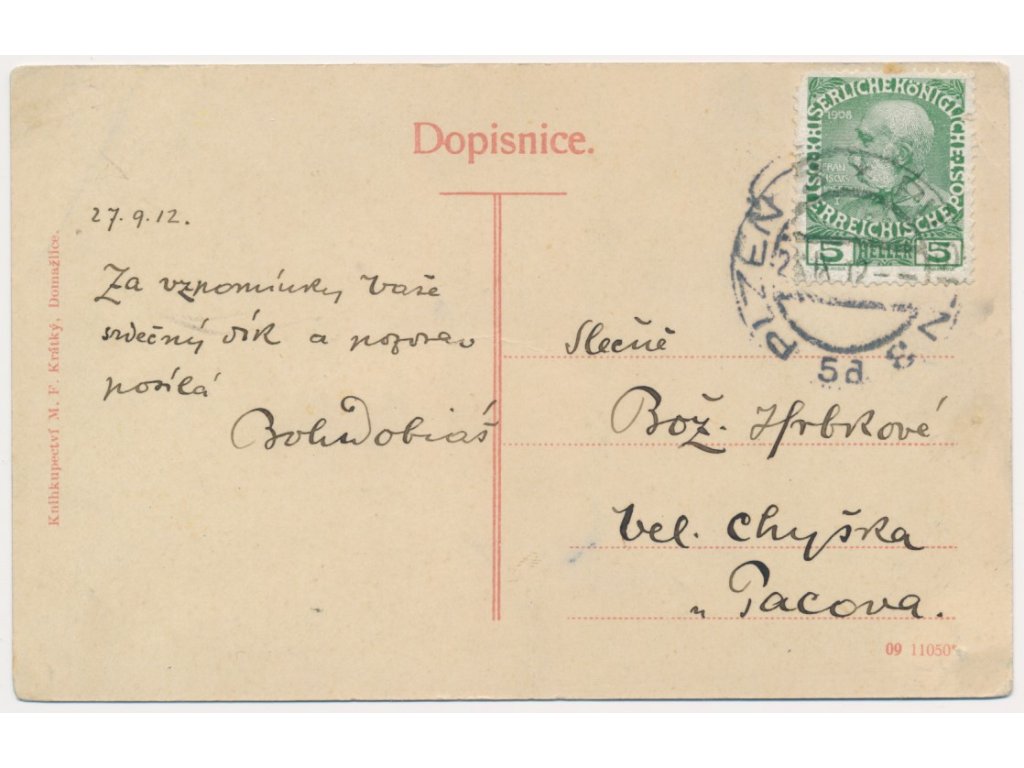 Dopisnice.
27.9.12.
Za vzpomínky Vaše
srdečný dík a pozdrav
posílá
Boh. Dobiáš
Slečně
Bož. Hrbkové
Vel. Chyška
u Pacova.
KAISERLICHE KÖNIGLICHE ÖSTERREICHISCHE POST
1908
5 HELLER 5
PLZEŇ
IX 12
5a
Knihkupectví M. F. Krátký, Domažlice.
09 11050*